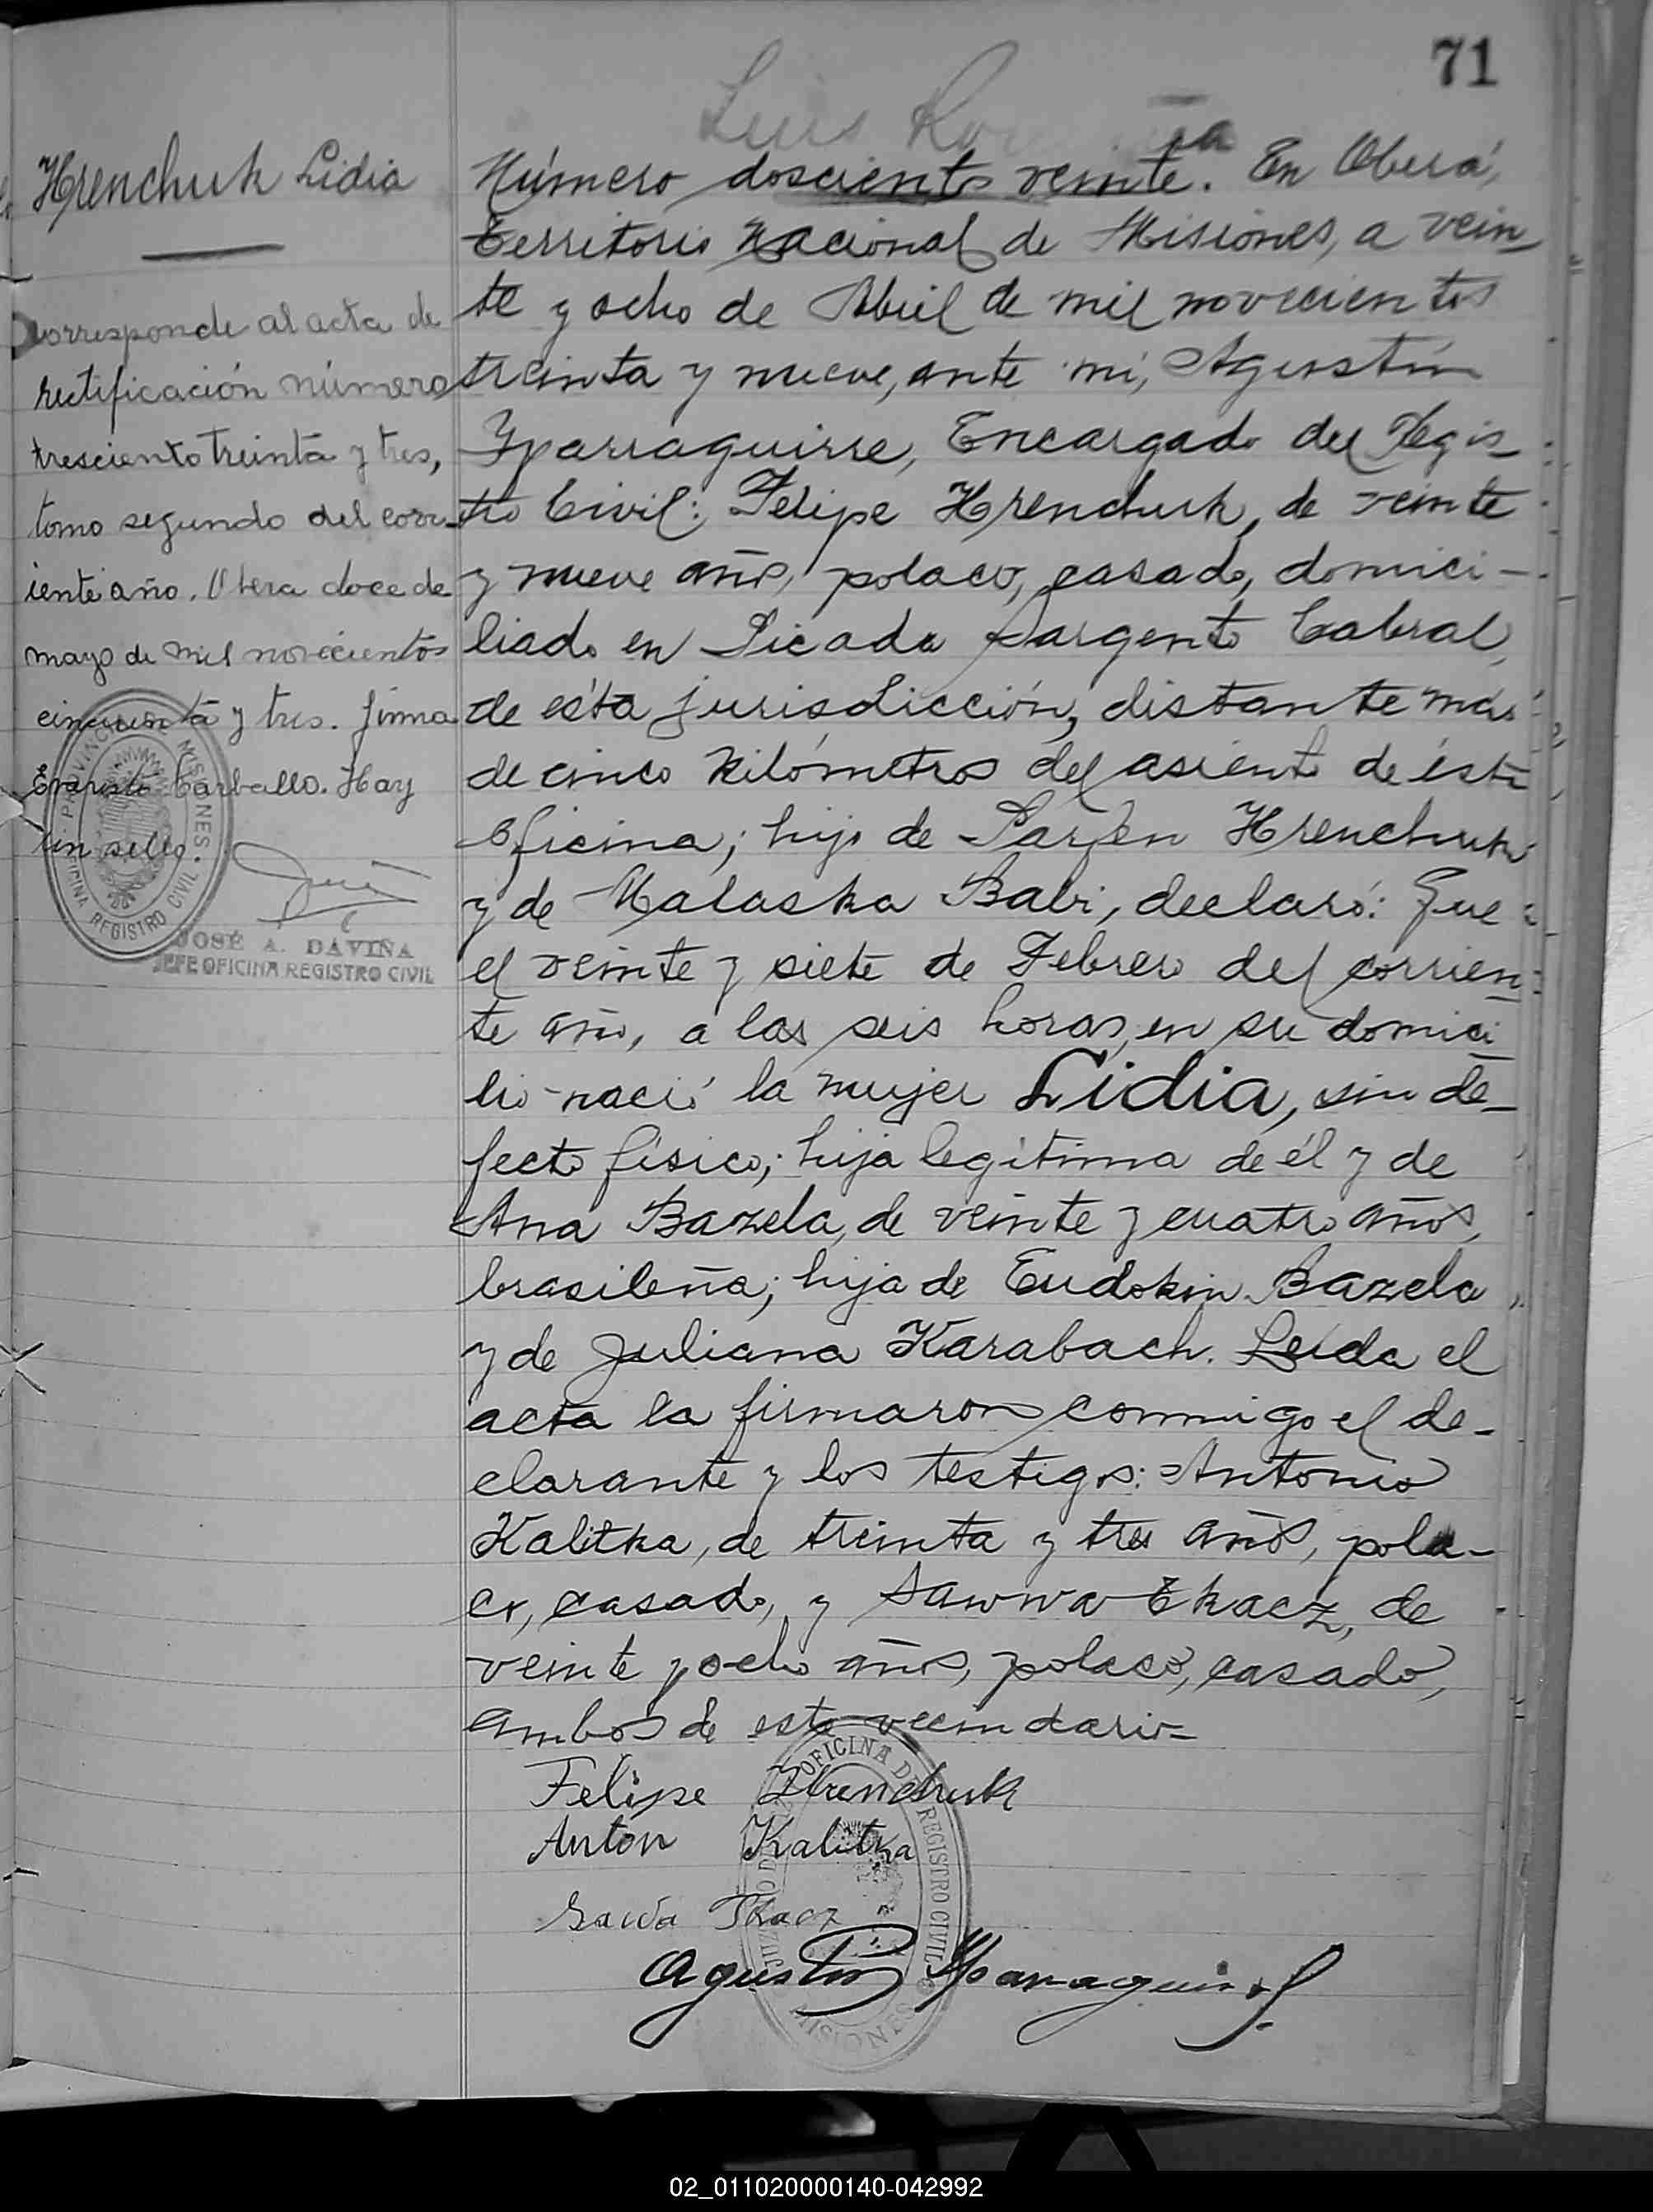 71
Luis
Hrenchuk Lidia
Corresponde al acta de
rectificación número
tresciento treinta y tres,
tomo segundo del corr-
iente año. Obera doce de
mayo de mil novecientos
cincuenta y tres. firma
Evaristo Carballo. Hay
un sello
PROVINCIA DE MISIONES
OFICINA REGISTRO CIVIL
JOSÉ A. DAVIÑA
JEFE OFICINA REGISTRO CIVIL
Número dosciento veinte. En Oberá,
Territorio Nacional de Misiones, a vein-
te y ocho de Abril de mil novecientos
treinta y nueve, ante mi, Agustín
Yparraguirre, Encargado del Regis-
tro Civil: Felipe Hrenchuk, de veinte
y nueve años, polaco, casado, domici-
liado en Picada Sargento Cabral,
de ésta jurisdicción, distante más
de cinco kilómetros del asiento de ésta
Oficina; hijo de Parfen Hrenchuk
y de Malaska Babi, declaró: Que
el veinte y siete de Febrero del corrien-
te año, a las seis horas, en su domici-
lio nació la mujer Lidia, sin de-
fecto físico; hija legítima de él y de
Ana Bazela, de veinte y cuatro años,
brasileña; hija de Eudokin Bazela
y de Juliana Karabach. Leida el
acta la firmaron conmigo el de-
clarante y los testigos: Antonio
Kalitka, de treinta y tres años, pola-
co, casado, y Sawwa Tkacz, de
veinte y ocho años, polaco, casado,
ambos de este vecindario-
Felipe Hrenchuk
Anton Kalitka
Sawa Tkacz
Agustín Yparraguirre
JUZGADO DE PAZ OFICINA DEL REGISTRO CIVIL
MISIONES
02_011020000140-042992